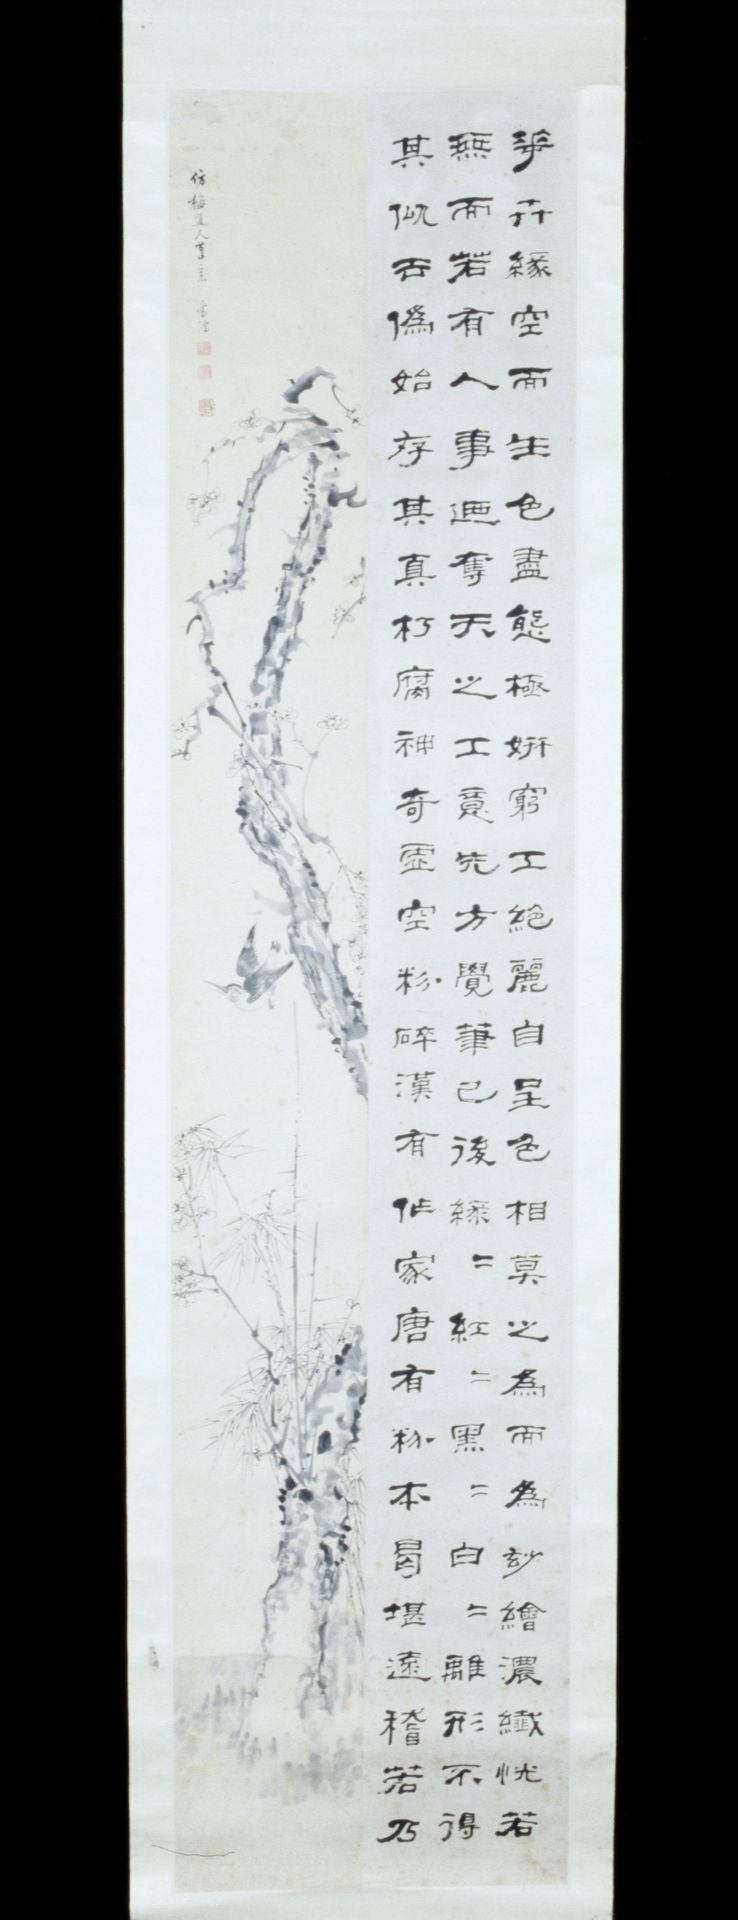 華卉緣空而生色盡態極妍窮工絕麗自呈色相莫之為而為玅繪濃纖恍若
無而若有人事迴奪天之工意先方覺筆已後綠〻紅〻黑〻白〻離形不得
其似去偽始存其真朽腐神奇虛空粉碎漢有作家唐有粉本曷堪遠稽若乃
仿梅道人筆意